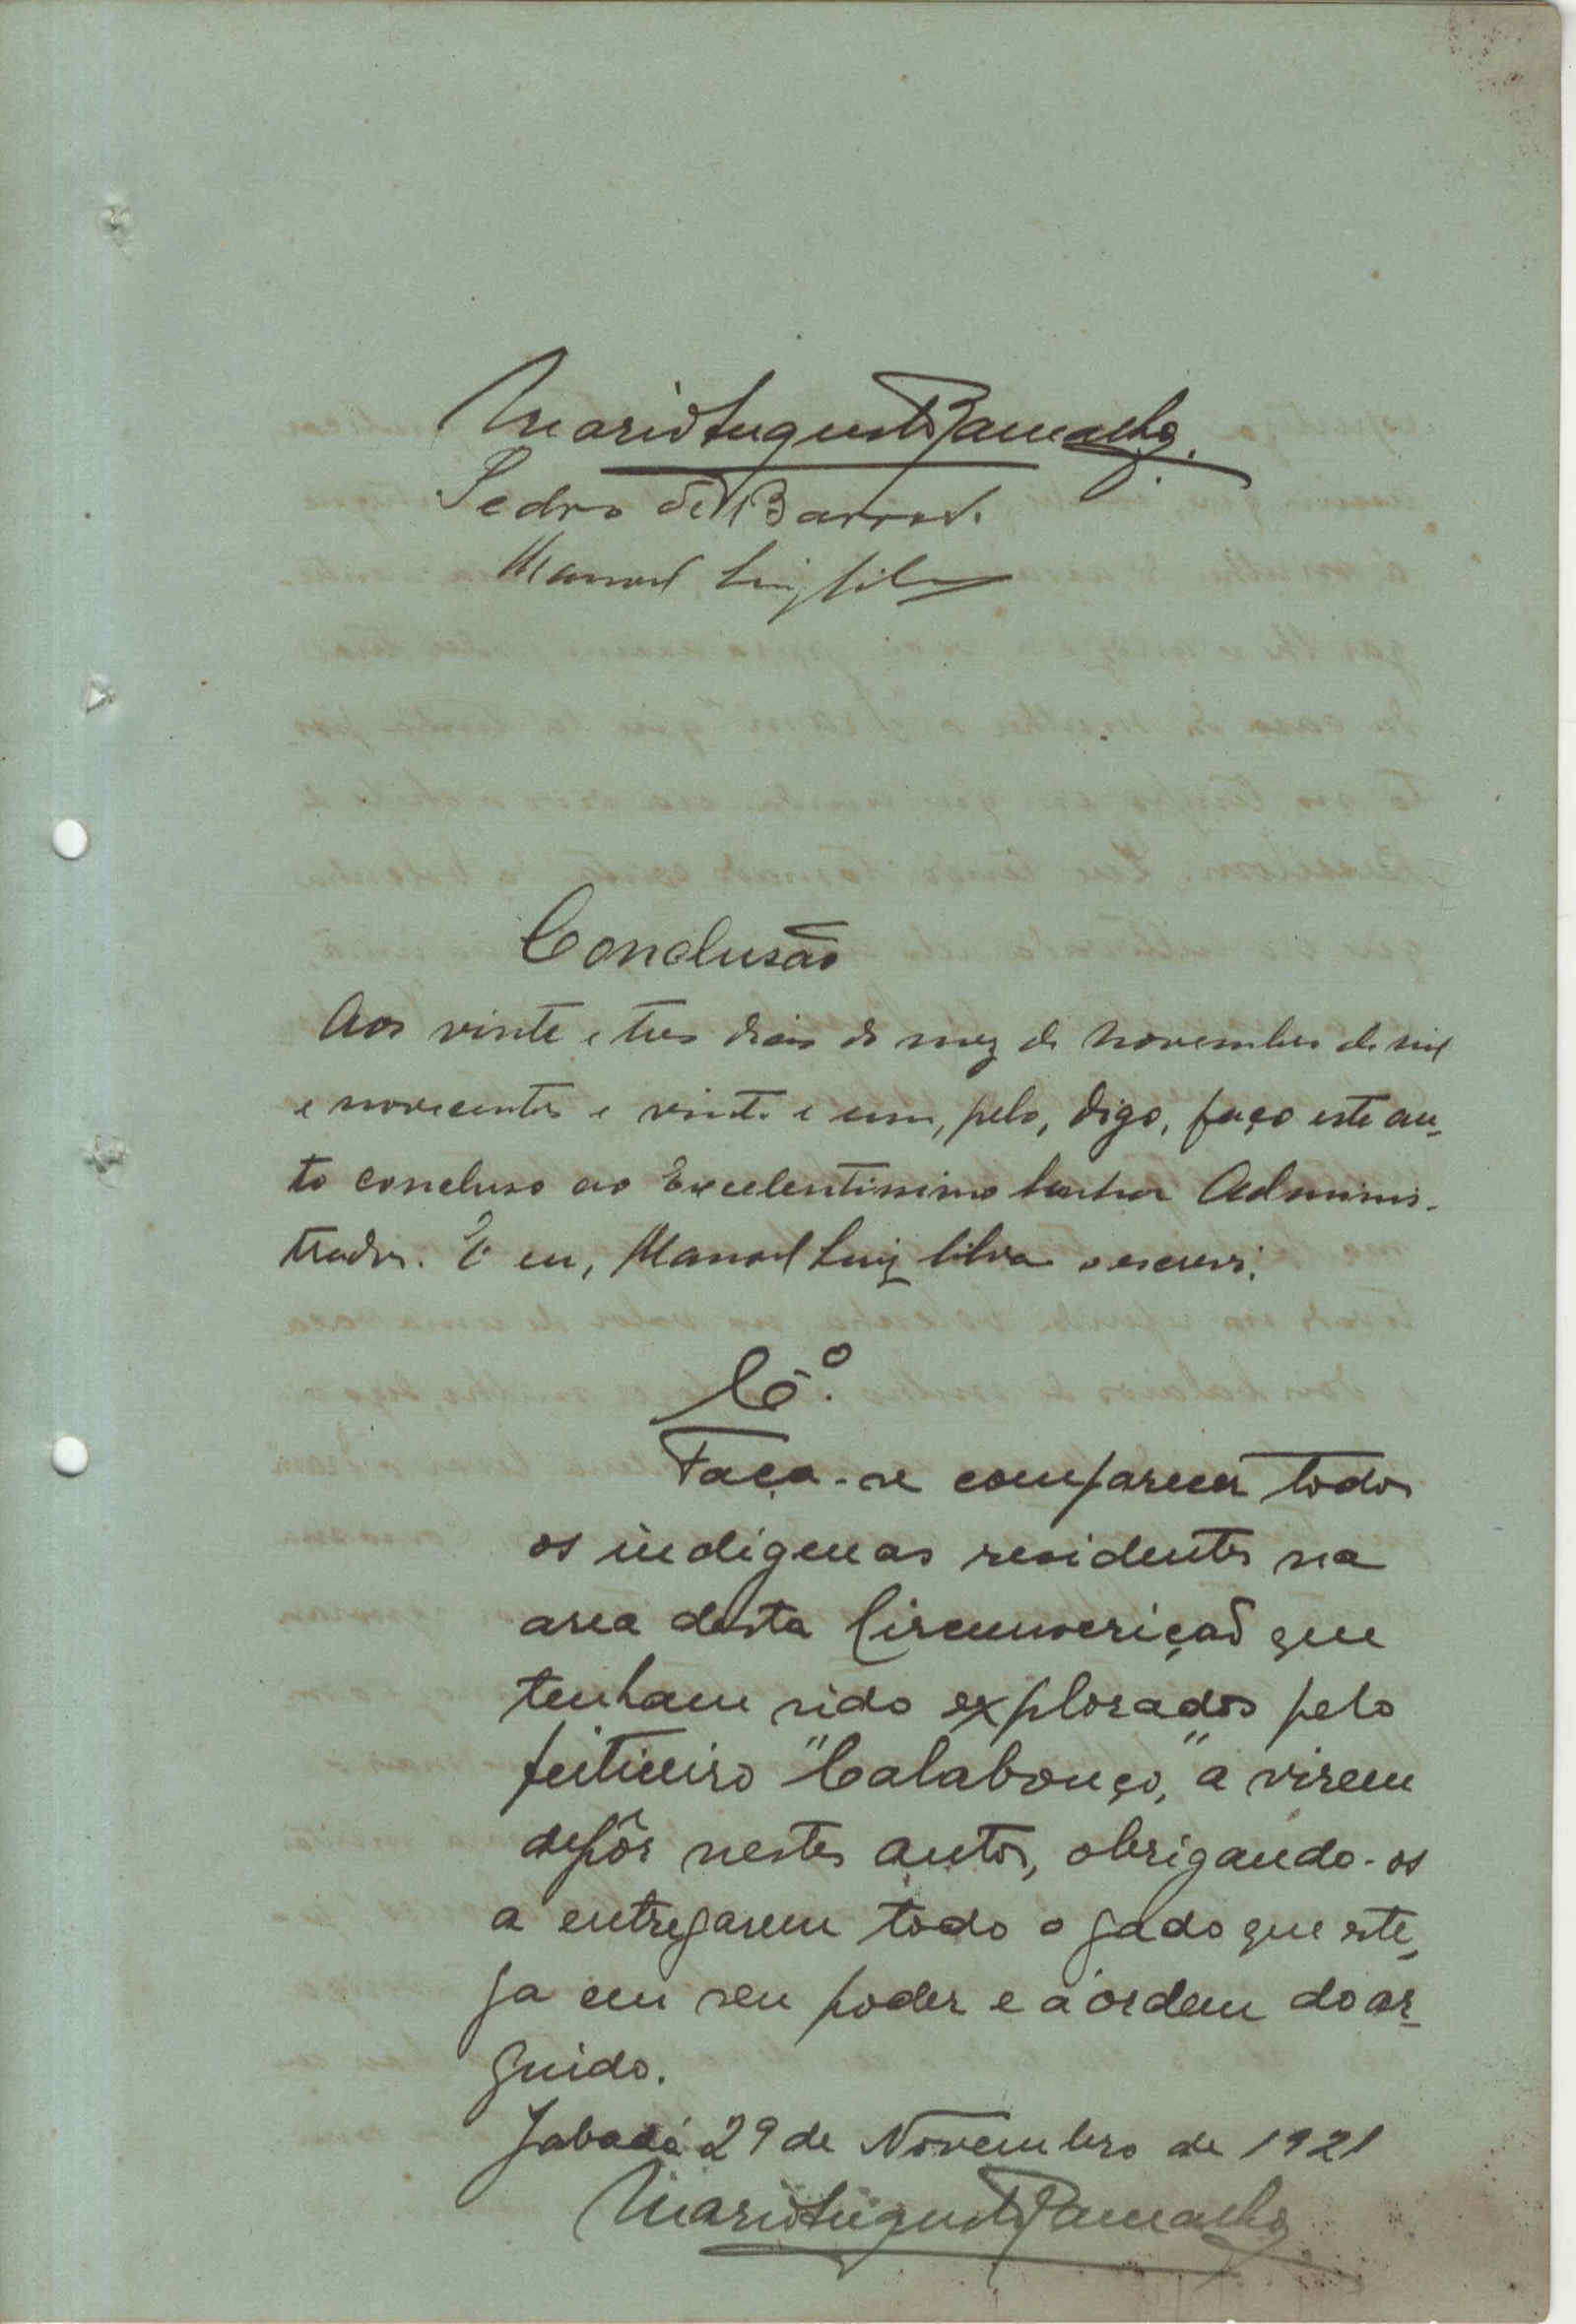 Mario Augusto Ramacho.
Pedro de Barros.
Manoel Luiz Silva
Conclusão
Aos vinte e tres dias do mez de Novembro de mil
e novecentos e vinte e um, pelo, digo, faço este au-
to concluso ao Excelentissimo Senhor Adminis-
trador. E eu, Manoel Luiz Silva o escrevi.
Cº.
Faça-se comparecer todos
os indigenas residentes na
area desta Circunscrição que
tenham sido explorados pelo
feiticeiro "Calabouço," a virem
depôr nestes autos, obrigando-os
a entregarem todo o gado que este-
ja em seu poder e á ordem do ar-
guido.
Jabadá 29 de Novembro de 1921
Mario Augusto Ramacho